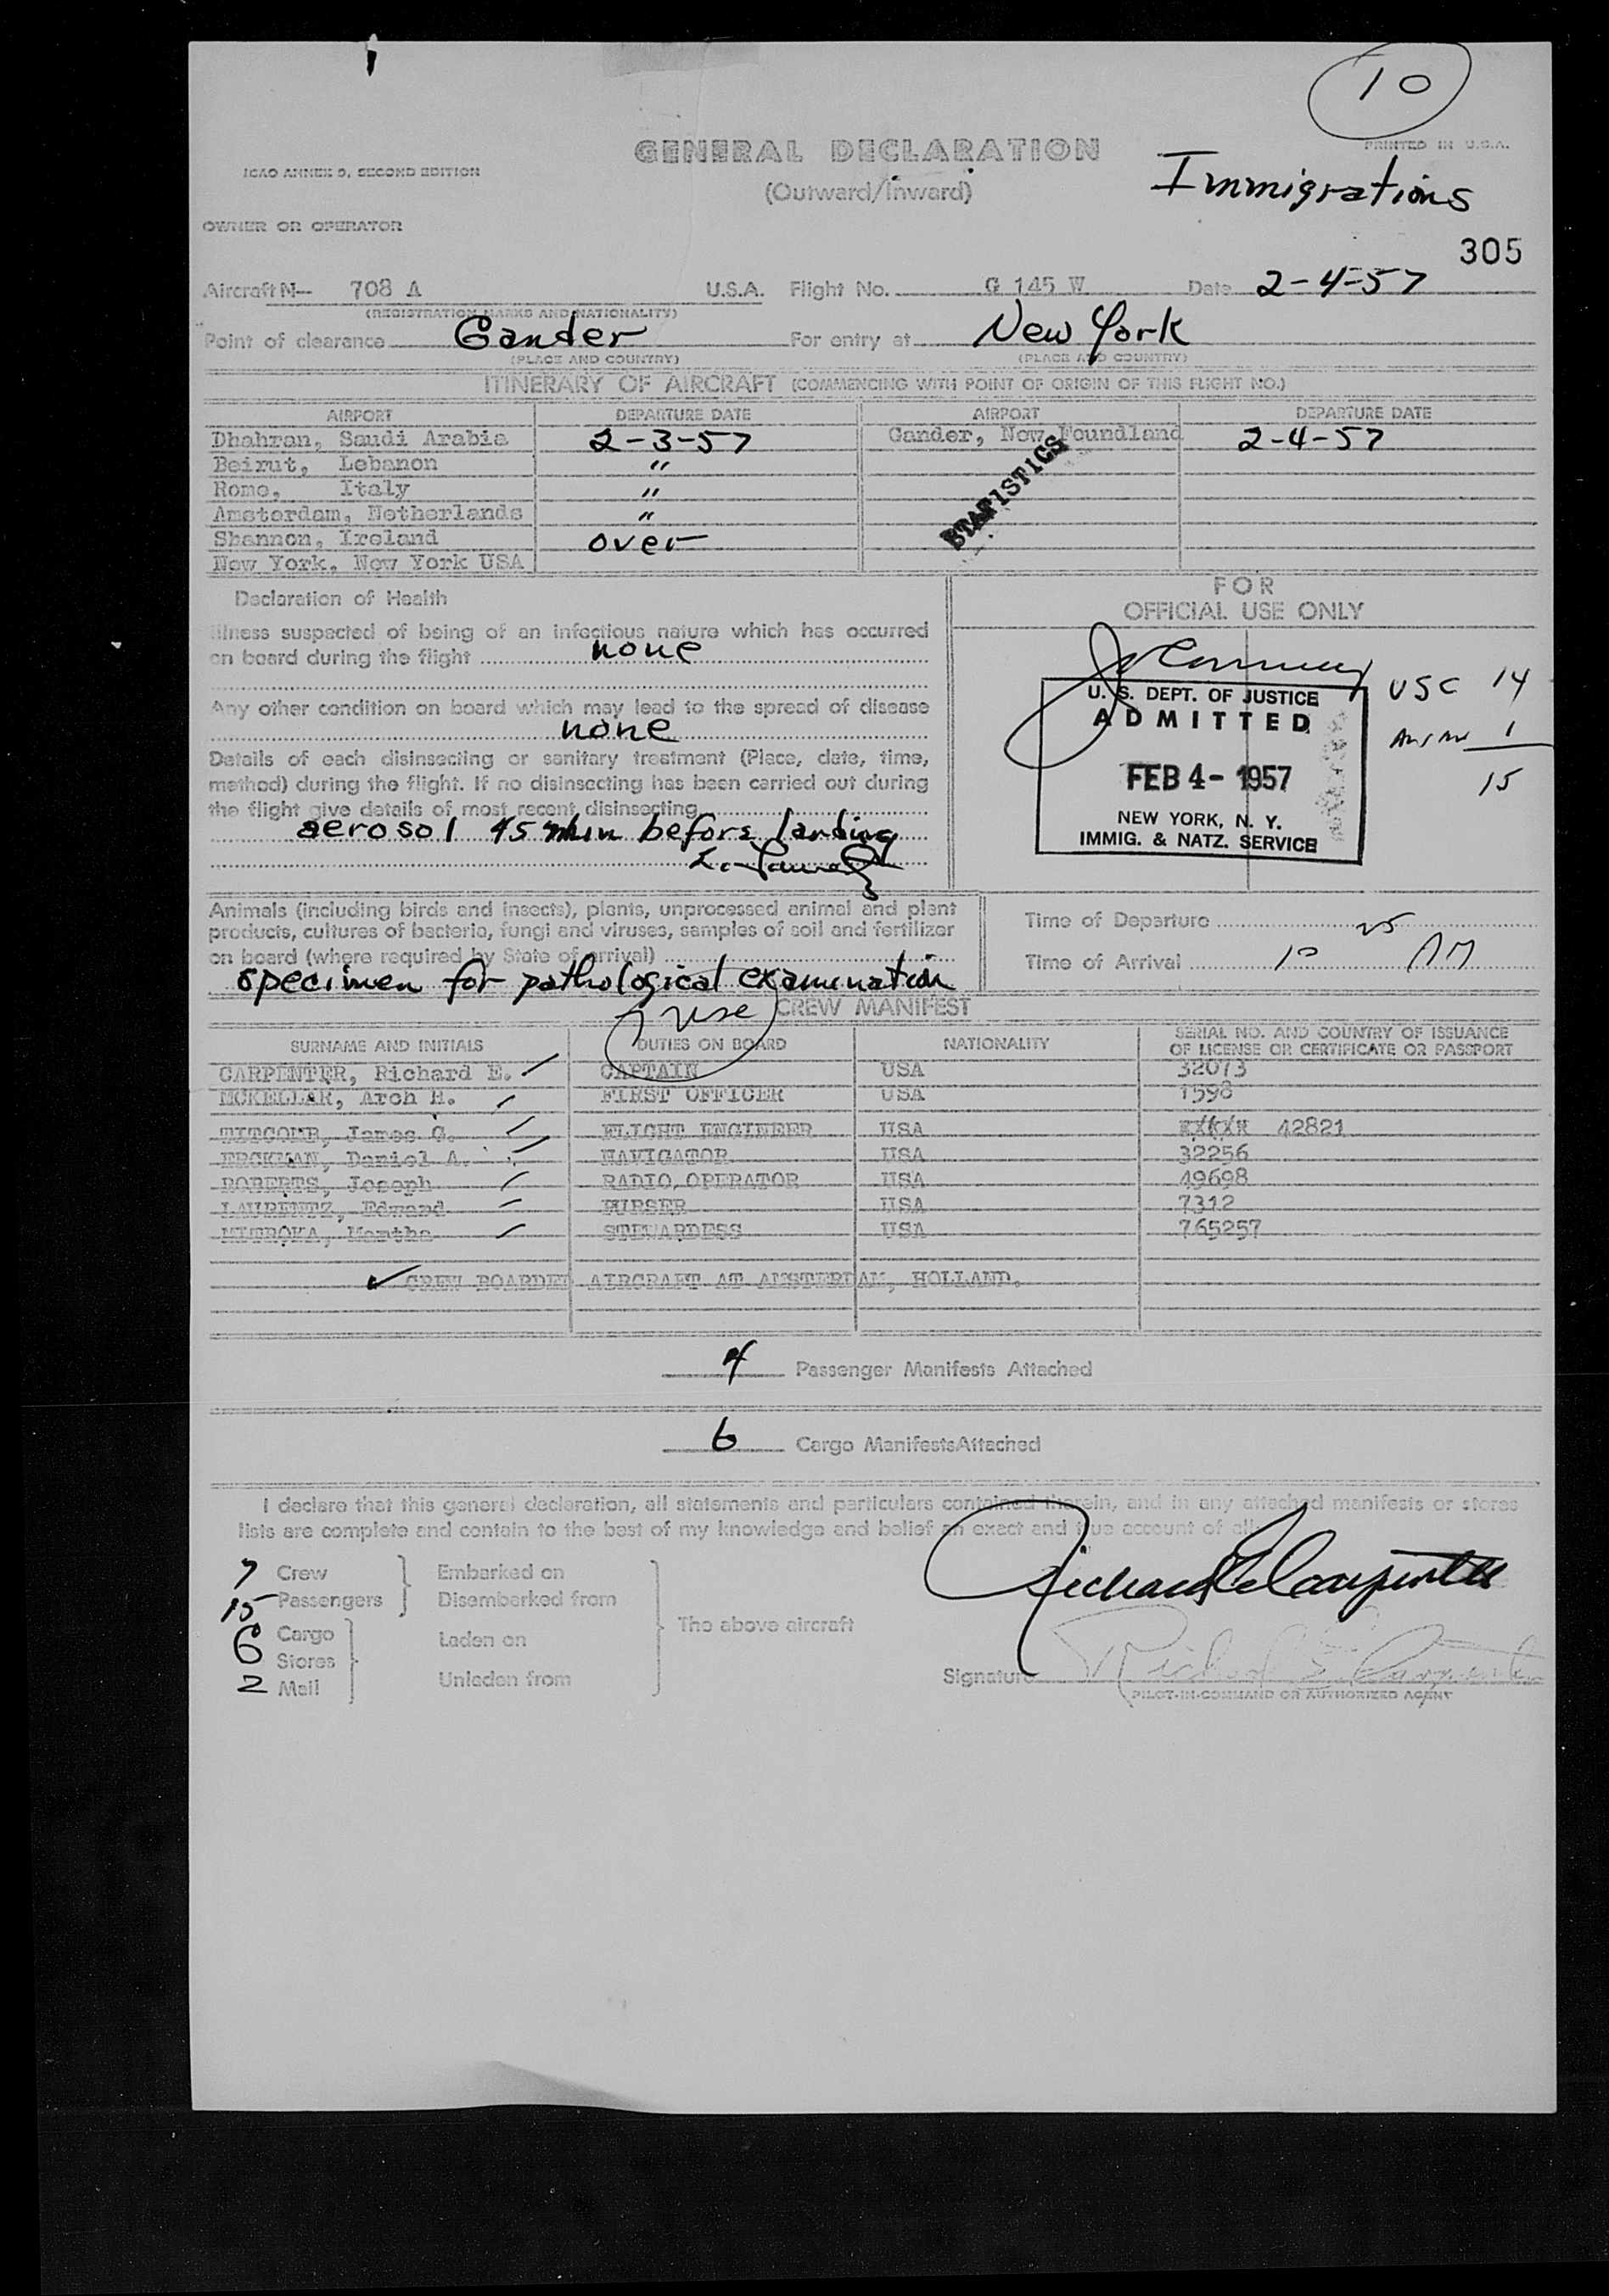 10
GENERAL DECLARATION
PRINTED IN U.S.A.
ICAO ANNEX 9, SECOND EDITION
(Outward/Inward)
Immigrations
OWNER OR OPERATOR
305
Aircraft N— 708 A U.S.A. Flight No. G 145 W Date 2-4-57
(REGISTRATION MARKS AND NATIONALITY)
Point of clearance Gander For entry at New York
(PLACE AND COUNTRY) (PLACE AND COUNTRY)
ITINERARY OF AIRCRAFT (COMMENCING WITH POINT OF ORIGIN OF THIS FLIGHT NO.)
AIRPORT DEPARTURE DATE AIRPORT DEPARTURE DATE
Dhahran, Saudi Arabia 2-3-57 Gander, New Foundland 2-4-57
Beirut, Lebanon "
Rome, Italy "
Amsterdam, Netherlands "
Shannon, Ireland over
New York, New York USA
STATISTICS
Declaration of Health
Illness suspected of being of an infectious nature which has occurred
on board during the flight none
Any other condition on board which may lead to the spread of disease
none
Details of each disinsecting or sanitary treatment (Place, date, time,
method) during the flight. If no disinsecting has been carried out during
the flight give details of most recent disinsecting
aerosol 45 min before landing
FOR
OFFICIAL USE ONLY
U. S. DEPT. OF JUSTICE
ADMITTED
FEB 4 - 1957
NEW YORK, N. Y.
IMMIG. & NATZ. SERVICE
USC 14
1
15
Animals (including birds and insects), plants, unprocessed animal and plant
products, cultures of bacteria, fungi and viruses, samples of soil and fertilizer
on board (where required by State of arrival)
specimen for pathological examination
use
Time of Departure
Time of Arrival 10 25 AM
CREW MANIFEST
SURNAME AND INITIALS DUTIES ON BOARD NATIONALITY SERIAL NO. AND COUNTRY OF ISSUANCE
OF LICENSE OR CERTIFICATE OR PASSPORT
CARPENTER, Richard E. CAPTAIN USA 32073
MCKELLAR, Arch H. FIRST OFFICER USA 1598
TITCOMB, James G. FLIGHT ENGINEER USA 42821
ERCKMAN, Daniel A. NAVIGATOR USA 32256
ROBERTS, Joseph RADIO OPERATOR USA 49698
LAURENTZ, Edmand PURSER USA 7312
MUTROKA, Martha STEWARDESS USA 765257
CREW BOARDED AIRCRAFT AT AMSTERDAM, HOLLAND.
4 Passenger Manifests Attached
6 Cargo Manifests Attached
I declare that this general declaration, all statements and particulars contained therein, and in any attached manifests or stores
lists are complete and contain to the best of my knowledge and belief an exact and true account of all
7 Crew
15 Passengers
Embarked on
Disembarked from
6 Cargo
Stores
2 Mail
Laden on
Unladen from
The above aircraft
Richard E Carpenter
Signature Richard E Carpenter
(PILOT-IN-COMMAND OR AUTHORIZED AGENT